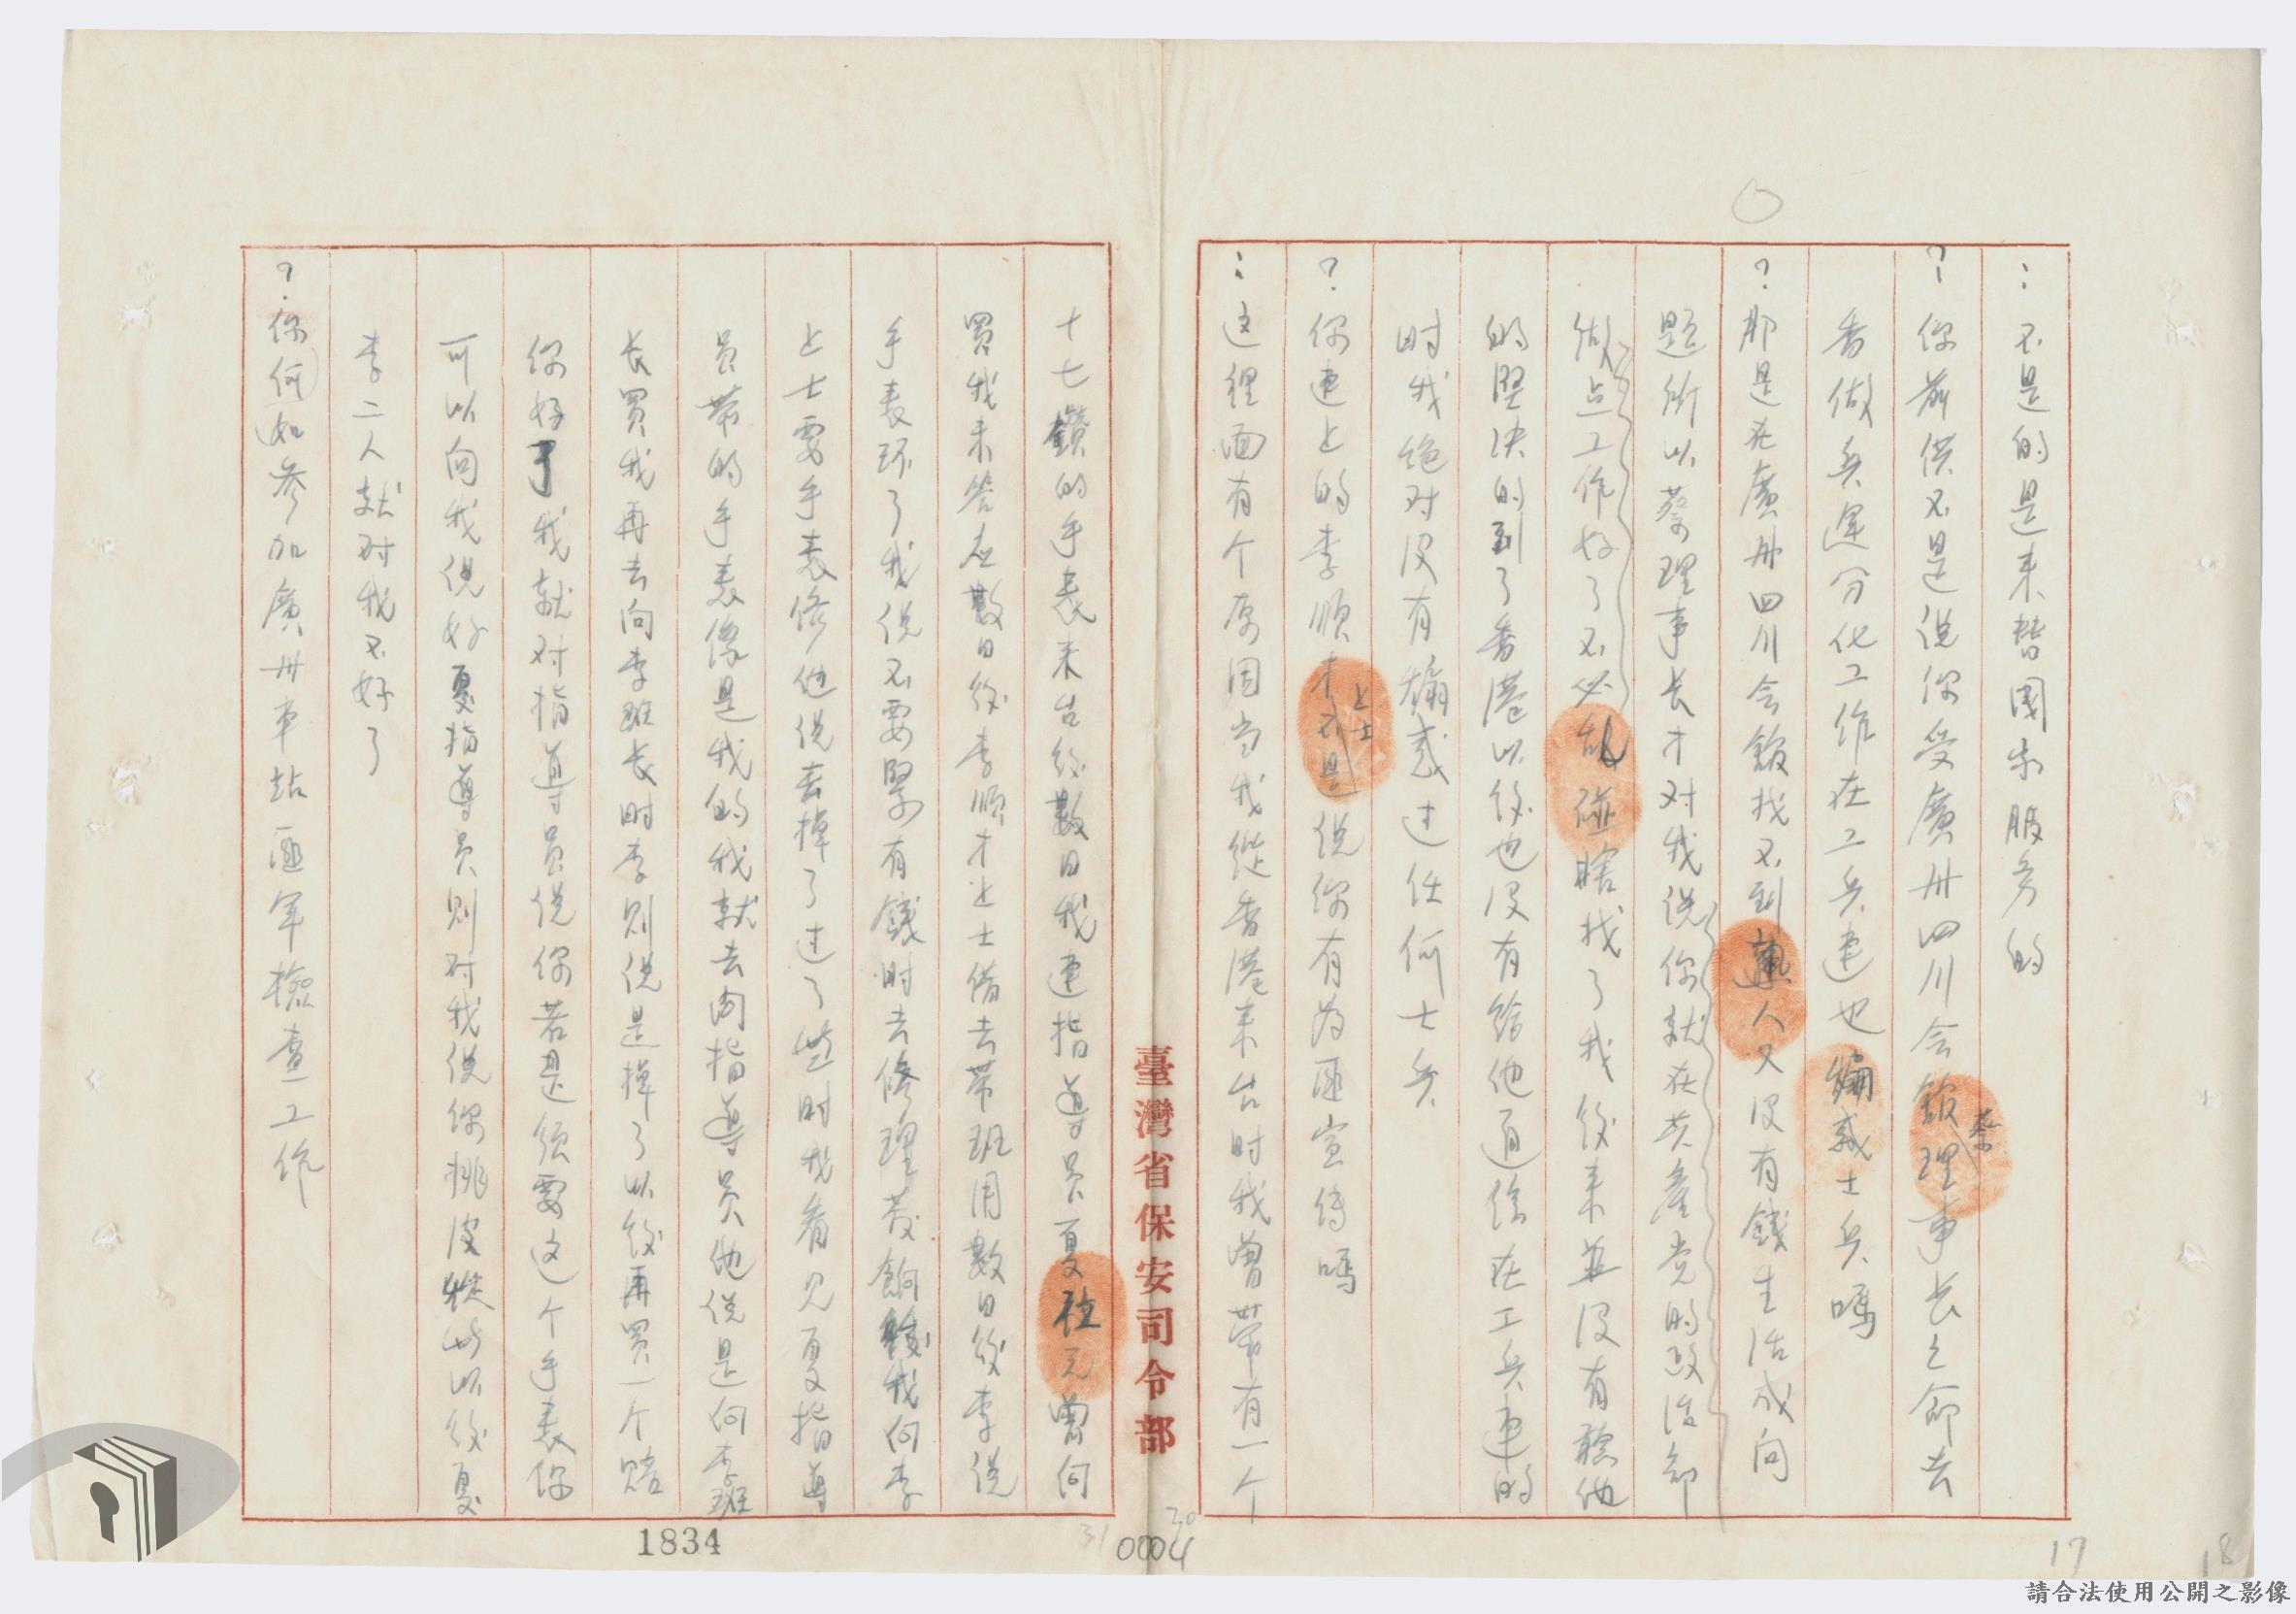 ：不是的是来替國家服务的
？你前供不是说你受廣州四川会館蔡理事长之命去
香做兵運分化工作在工兵連也煽惑士兵嗎
？那是在廣州四川会館找不到熟人又没有錢生活成问
题所以蔡理事长才对我说你就在共產党的政治部
做点工作好了不必胡碰瞎找了我後来並没有聽他
的坚决的到了香港以後也没有給他通信在工兵連的
时我绝对没有煽惑过任何士兵
？你連上的李順才上士说你有为匪宣传嗎
：这裡面有个原因当我從香港来台时我曾带有一个
十七鑽的手表来台後數日我連指導員夏 元曾向
買我未答应數日後李順才上士借去带班用數日後李说
手表坏了我说不要緊有錢时去修理发餉錢我向李
上士要手表修他说去掉了过了些时我看见夏指導
员带的手表像是我的我就去问指導员他说是向李班
长買我再去向李班长时李则说是掉了以後再買一个赔
你好了我就对指導員说你若是须要这个手表你
可以向我说好夏指導员则对我说你挑皮 以後夏
李二人就对我不好了
？你何如参加廣州車站匪軍檢查工作
臺灣省保安司令部
1834
31
30
0004
17
18
請合法使用公開之影像